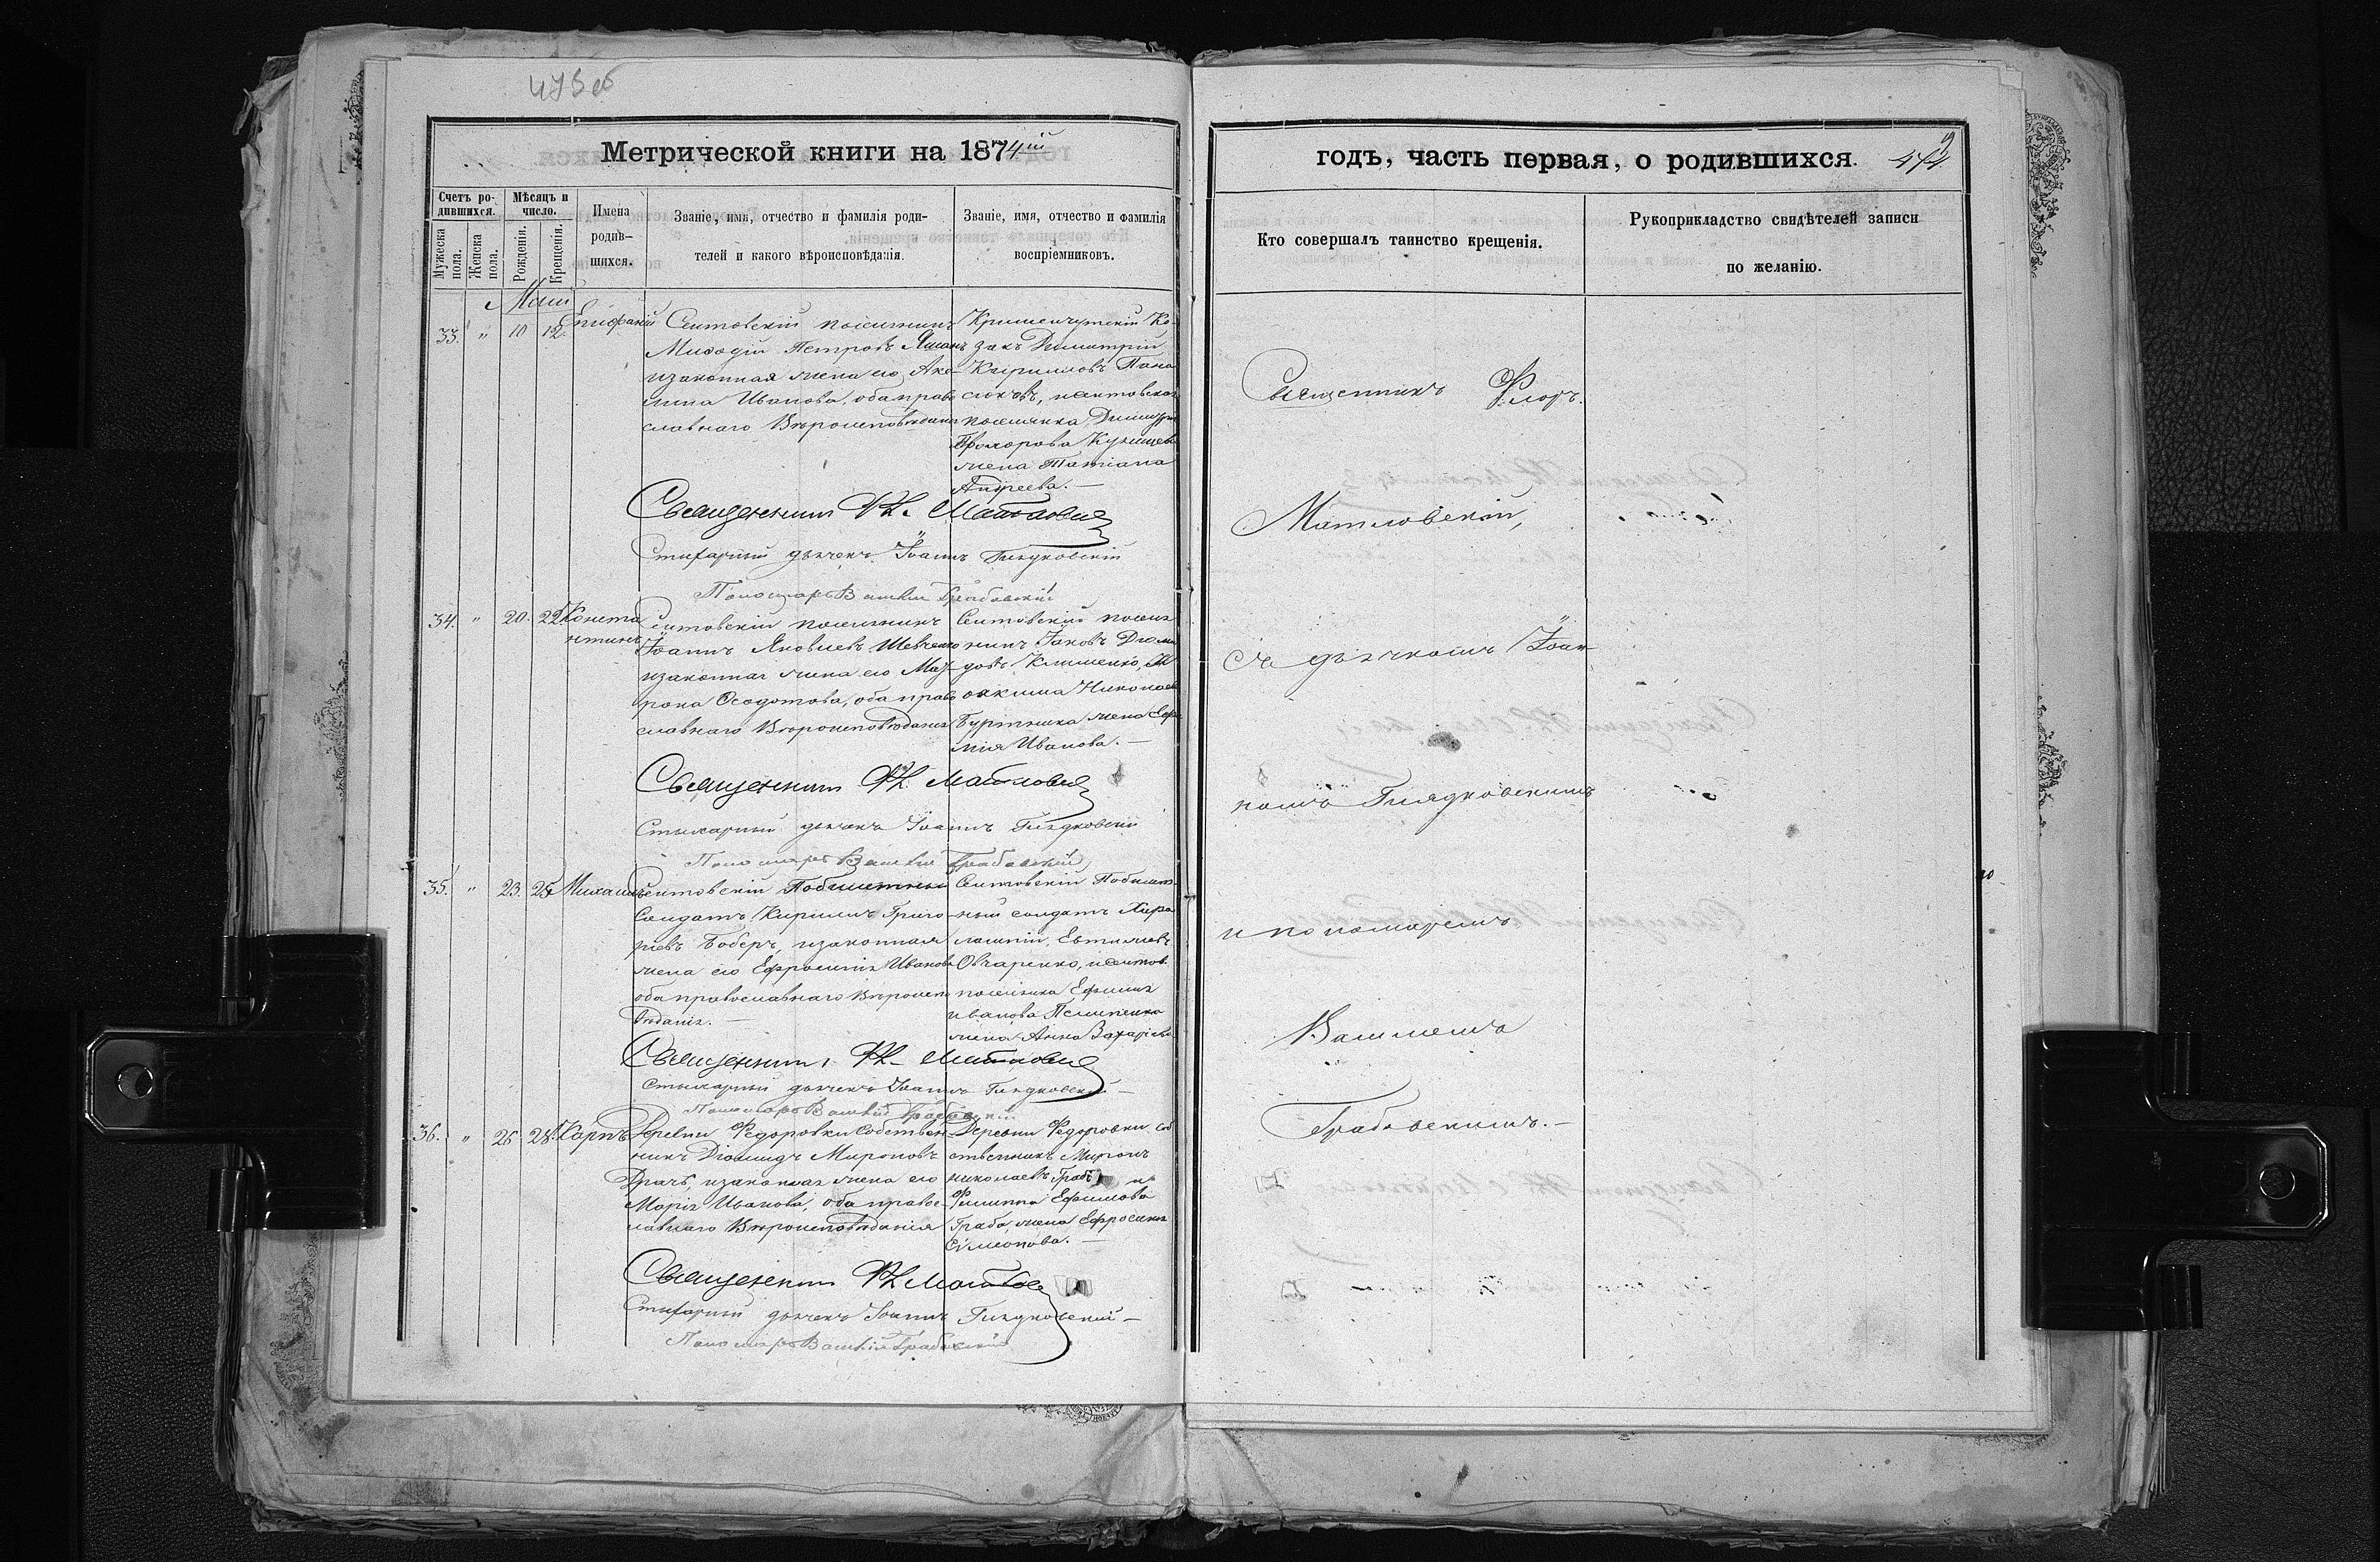 475 об
Метрической книги на 1874ій
Счетъ ро-
дившихся.
Мужеска пола.
Женска пола.
Мѣсяцъ и
число.
Рожденія.
Крещенія.
Имена
родив-
шихся.
Званіе, имя, отчество и фамилія роди-
телей и какого вѣроисповѣданія.
Званіе, имя, отчество и фамилія
воспріемниковъ.
Май
33. " 10 12. Епифаній
Сентовскій поселянинъ
Петровъ
изаконная жена его Аку-
лина Иванова, оба право
славнаго Вѣроисповѣданія
Козакъ Димитрій
Кирилловъ
поселянка
Прохорова
жена Татіана
Андреева. —
Священникъ Фл. Матловскій
Стихарный дьячекъ Іоаннъ Глядковскій
Пономарь Василій Грабовскій
34. " 20. 22. Конста
нтинъ
Сентовскій поселянинъ
Іоаннъ Яковлевъ Шевченко
изаконная жена его Мат-
рона Ѳеодотова, оба право
славнаго Вѣроисповѣданія
Сентовскій поселя
нинъ Іаковъ
Клименко,
Николаев
жена Ефи
мія Иванова. —
Священникъ Фл. Матловскій
Стихарный дьячекъ Іоаннъ Глядковскій
Пономарь Василій Грабовскій
35. " 23. 25. Михаилъ
Сентовскій Побилетный
Солдатъ Кириллъ Григо-
рьевъ Боберъ, изаконная
жена его Ефросинія Иванова
оба православнаго Вѣроиспо
вѣданія. —
Сентовскій Побилет-
ный солдатъ Хара
лампій, Евтихіевъ
Овчаренко, и сентов.
поселянка
Иванова
жена Анна Захарьева
Священникъ Фл. Матловскій
Стихарный дьячекъ Іоаннъ Глядковскій —
Пономарь Василій Грабовскій
36. " 26 28. Карпъ
Деревни Ѳедоровки собствен-
никъ Діомидъ Мироновъ
Драчъ, изаконная жена его
Марія Иванова, оба правос-
лавнаго Вѣроисповѣданія
Деревни Ѳедоровки соб
ственникъ Миронъ
Николаевъ Граб и
Филиппа Ефимова
Граба, жена Ефросинія
Сімеонова. —
Священникъ Фл. Матловскій
Стихарный дьячекъ Іоаннъ Глядковскій —
Пономарь Василій Грабовскій
годъ, часть первая, о родившихся.
Кто совершалъ таинство крещенія.
Рукоприкладство свидѣтелей записи
по желанію.
Священникъ Флоръ
Матловскій,
съ дьячкомъ Іоан-
номъ Глядковскимъ
и пономаремъ
Василіемъ
Грабовскимъ. —